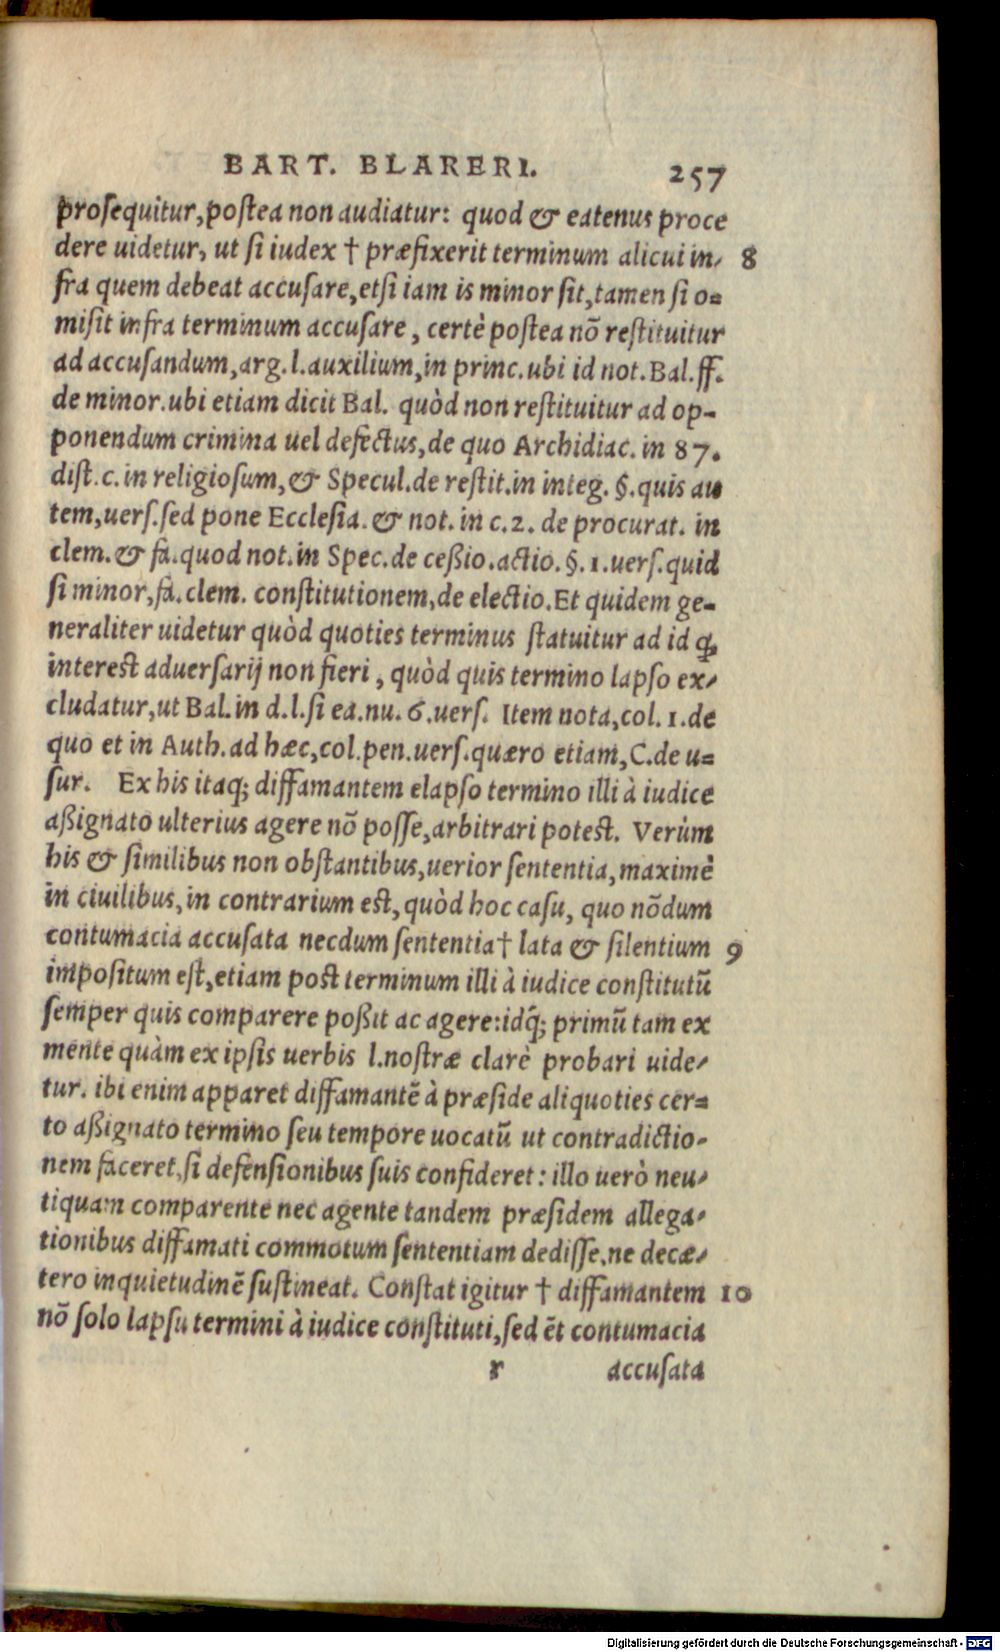 BART. BLARERI. 257
prosequitur, postea non audiatur: quod & eatenus proce
dere uidetur, ut si iudex † præfixerit terminum alicui in- 8
fra quem debeat accusare, etsi iam is minor sit, tamen si o-
misit infra terminum accusare, certè postea nō restituitur
ad accusandum, arg. l. auxilium, in princ. ubi id not. Bal. ff.
de minor. ubi etiam dicit Bal. quòd non restituitur ad op-
ponendum crimina uel defectus, de quo Archidiac. in 87.
dist. c. in religiosum, & Specul. de restit. in integ. §. quis au
tem, uers. sed pone Ecclesia. & not. in c. 2. de procurat. in
clem. & fa. quod not. in Spec. de ceßio. actio. §. 1. uers. quid
si minor, fa. clem. constitutionem, de electio. Et quidem ge-
neraliter uidetur quòd quoties terminus statuitur ad id ꝙ
interest aduersarij non fieri, quòd quis termino lapso ex-
cludatur, ut Bal. in d. l. si ea. nu. 6. uers. Item nota, col. 1. de
quo et in Auth. ad hæc, col. pen. uers. quæro etiam, C. de u-
sur. Ex his itaq; diffamantem elapso termino illi à iudice
aßignato ulterius agere nō posse, arbitrari potest. Verùm
his & similibus non obstantibus, uerior sententia, maximè
in ciuilibus, in contrarium est, quòd hoc casu, quo nōdum
contumacia accusata necdum sententia † lata & silentium 9
impositum est, etiam post terminum illi à iudice constitutū
semper quis comparere poßit ac agere: idq́; primū tam ex
mente quàm ex ipsis uerbis l. nostræ clarè probari uide-
tur. ibi enim apparet diffamantē à præside aliquoties cer-
to aßignato termino seu tempore uocatū ut contradictio-
nem faceret, si defensionibus suis confideret: illo uerò neu-
tiquam comparente nec agente tandem præsidem allega-
tionibus diffamati commotum sententiam dedisse, ne decæ-
tero inquietudinē sustineat. Constat igitur † diffamantem 10
nō solo lapsu termini à iudice constituti, sed ēt contumacia
r accusata
Digitalisierung gefördert durch die Deutsche Forschungsgemeinschaft - DFG